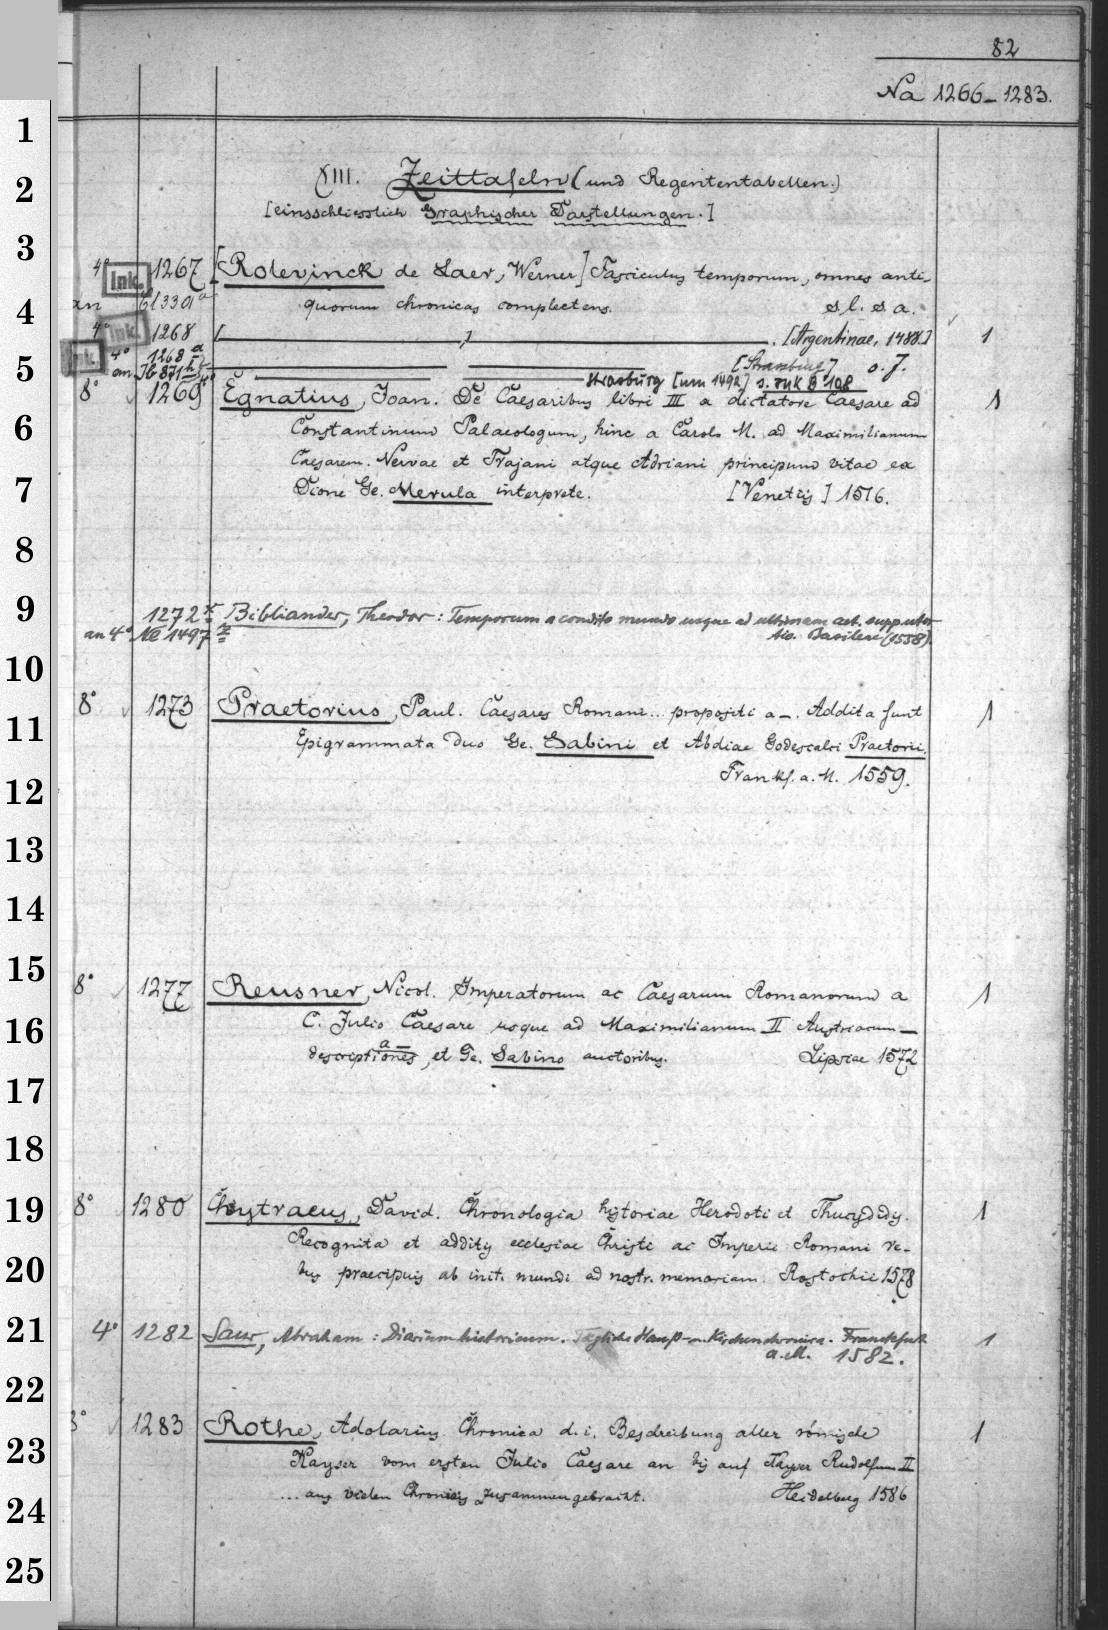 82
Na 1266-1283.
XIII. Zeittafeln (und Regententabellen.)
[einsschliesslich Graphischer Darstellungen.]
4° Ink. 1267 [Rolevinck de Laer, Werner] Fasciculus temporum, omnes anti-
an quorum chronicas complectens. s. l. s. a.
4° Ink. 1268 [ ,] . [Argentinae, 1488.] 1
Ink. 4° 1268 a [Strassburg] o. J.
an Strasburg [um 1492]
8° 1269 Egnatius, Joan. De Caesaribus libri III a dictatore Caesare ad 1
Constantinum Palaeologum, hinc a Carolo M. ad Maximilianum
Caesarem. Nervae et Trajani atque Adriani principum vitae ex
Dione Ge. Merula interprete. [Venetiis] 1516.
1272 x Bibliander, Theodor: Temporum a condito mundo usque ad ultimam aet. supputa-
an 4° 1497 tio. Basileae (1558).
8° 1273 Praetorius, Paul. Caesares Romani... propositi a -. Addita sunt 1
Epigrammata duo Ge. Sabini et Abdiae Godescalci Praetorii.
Frankf. a. M. 1559.
8° 1277 Reusner, Nicol. Imperatorum ac Caesarum Romanorum a 1
C. Julio Caesare usque ad Maximilianum II Austriacum
a
descriptiones, et Ge. Sabino auctoribus. Lipsiae 1572
8° 1280 Chytraeus, David. Chronologia historiae Herodoti et Thucydidis. 1
Recognita et additis ecclesiae Christi ac Imperii Romani re-
bus praecipuis ab init. mundi ad nostr. memoriam. Rostochii 1578
4° 1282 Saur, Abraham: Diarium historicum. Täglichs Hauß- u. Kirchenchronica. Franckfurt 1
a. M. 1582.
8° 1283 Rothe, Adolarius. Chronica d. i. Beschreibung aller römische 1
Kayser vom ersten Julio Caesare an bis auf Kayser Rudolfum II
... aus vielen Chronicis zusammengebracht. Heidelberg 1586
1
2
3
4
5
6
7
8
9
10
11
12
13
14
15
16
17
18
19
20
21
22
23
24
25